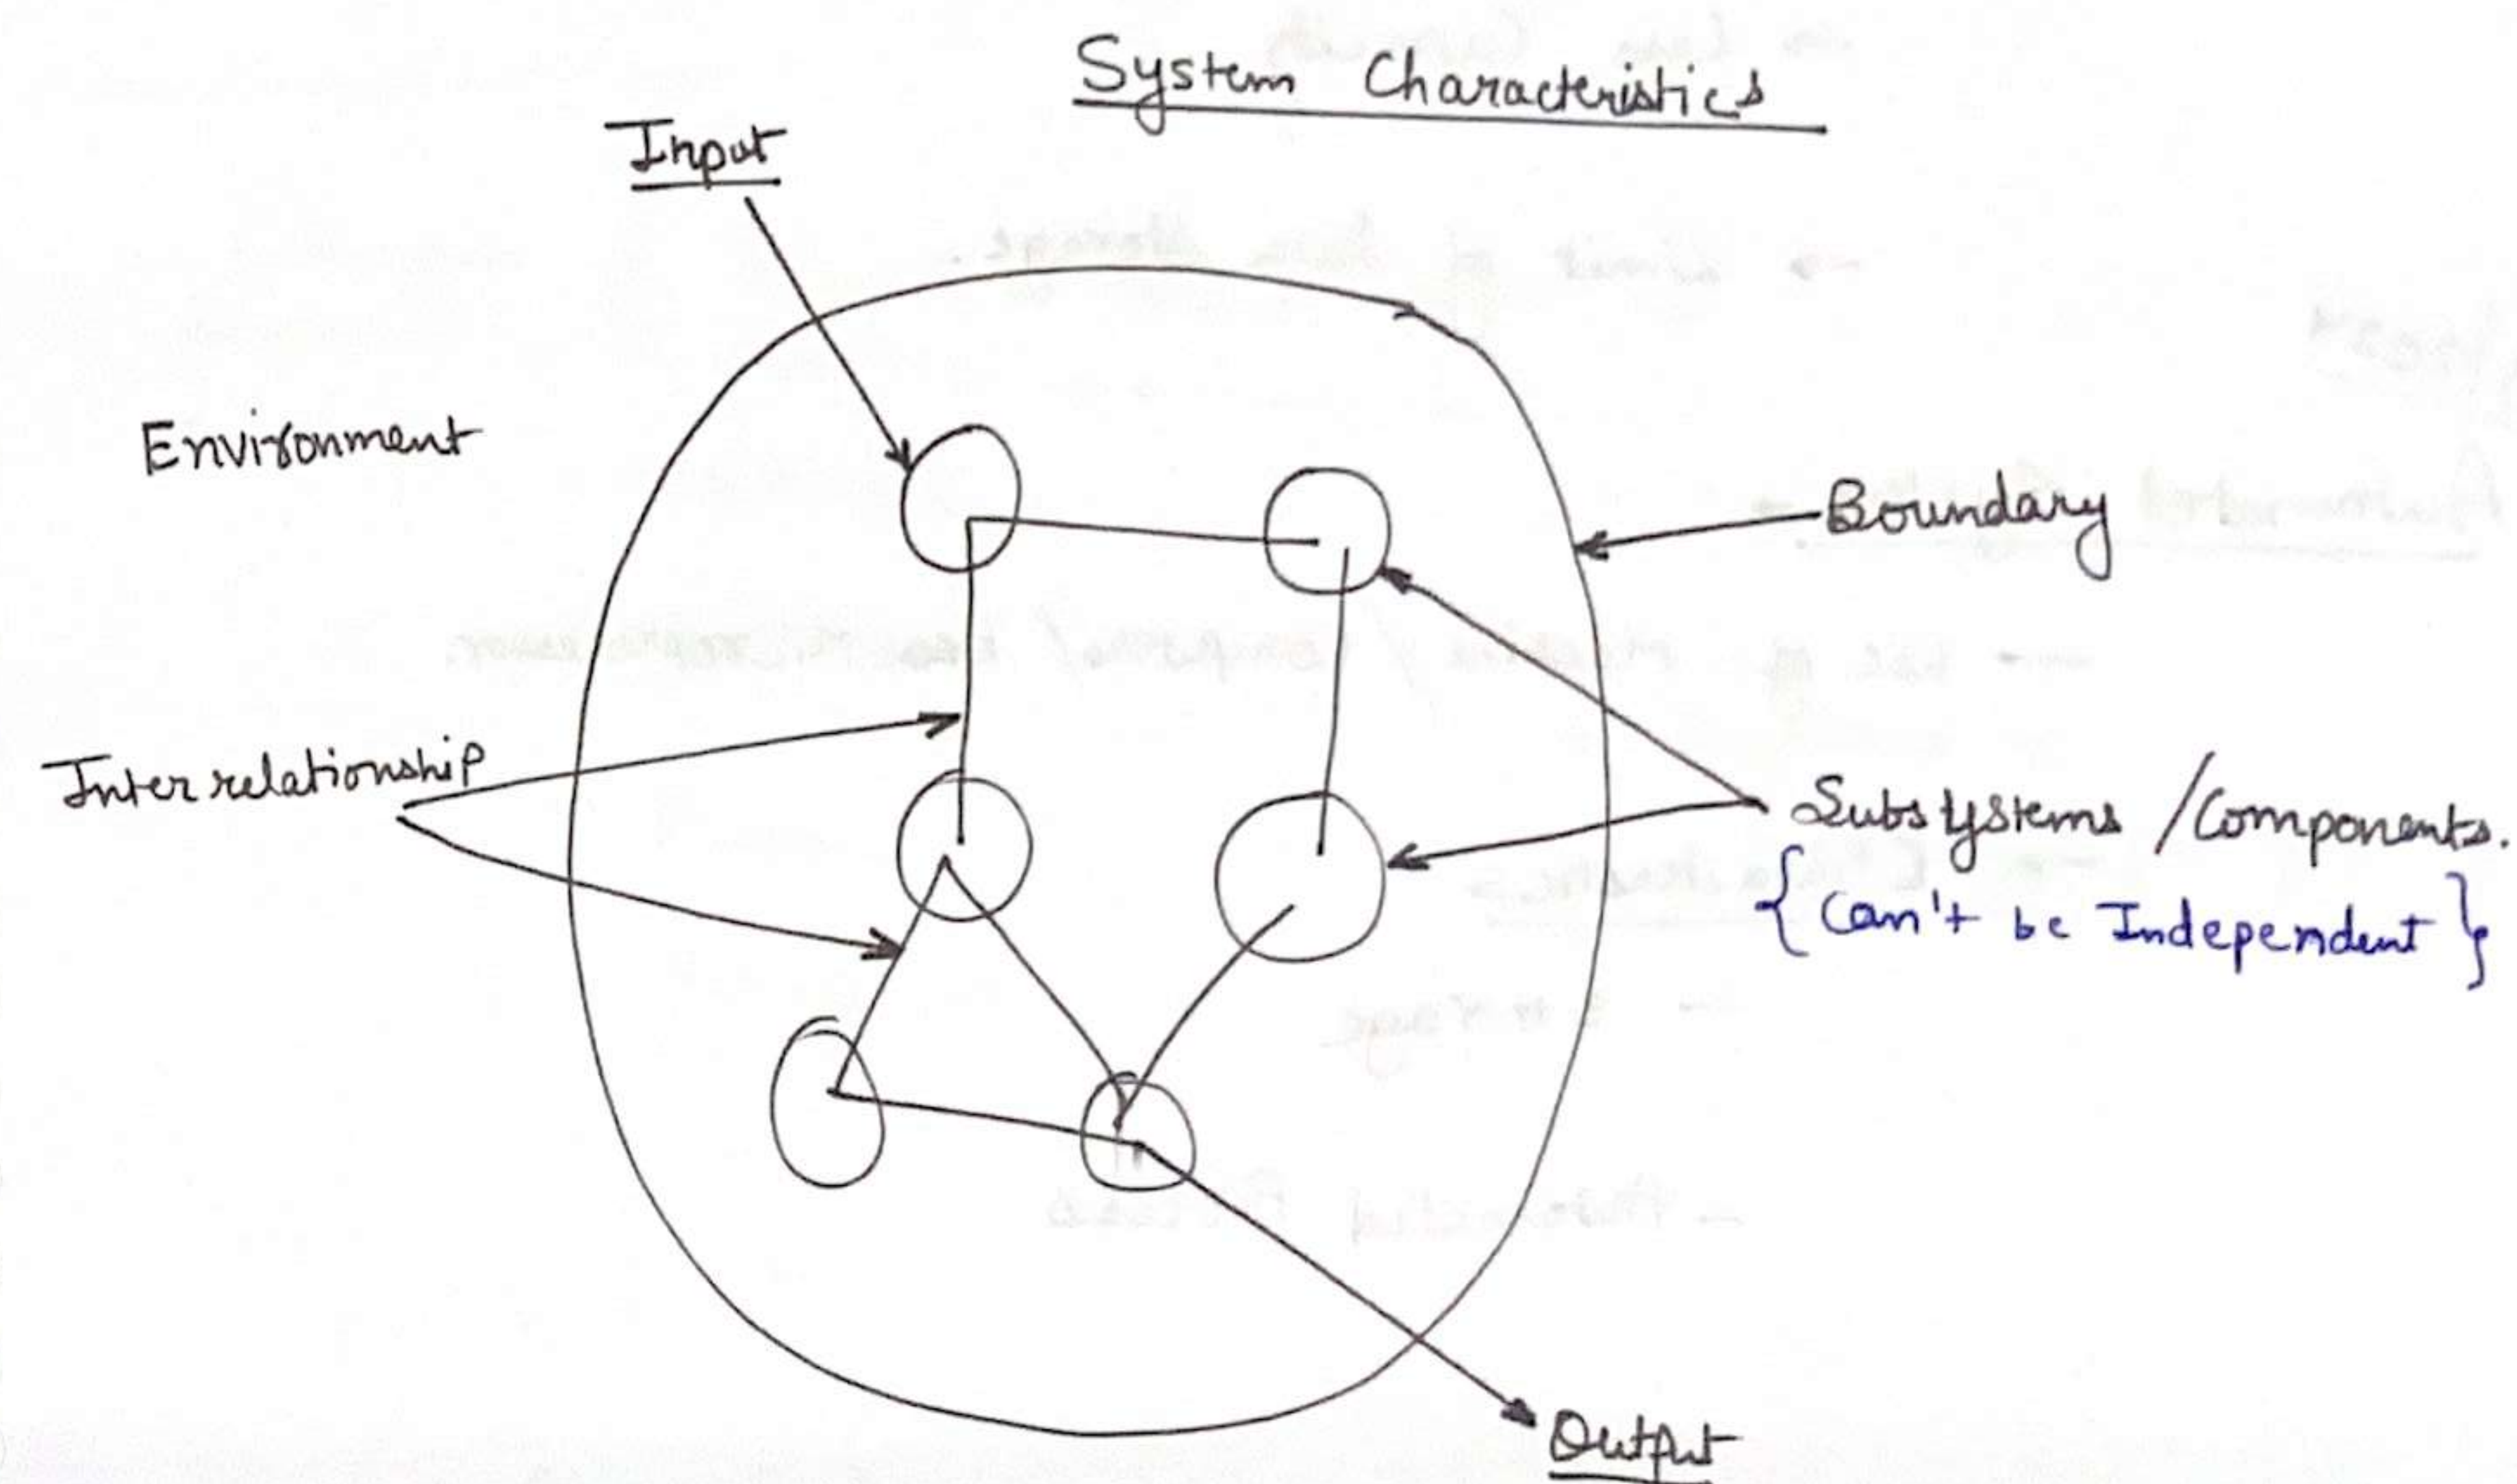 System Characteristics
Input
Environment
Boundary
Interrelationship
Subsystems / Components.
{ Can't be Independent }
Output